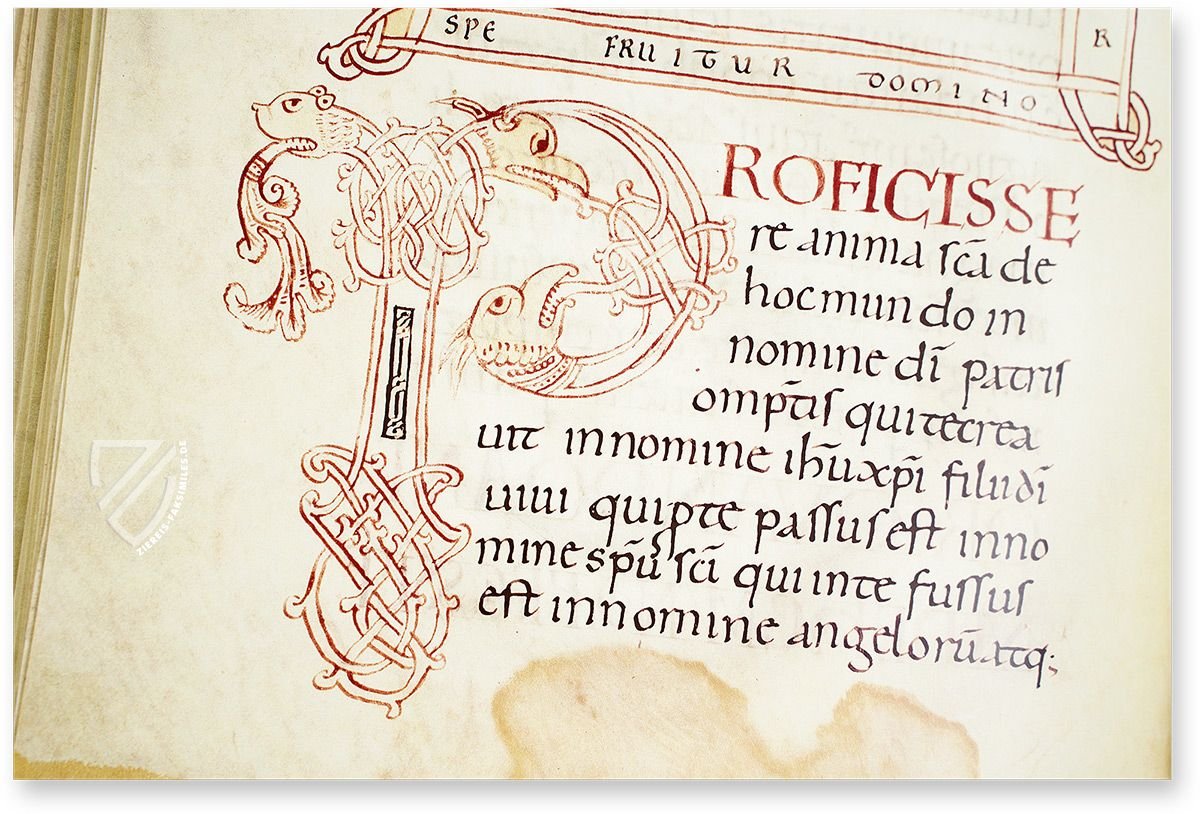 SPE FRUITUR DOMINO R
PROFICISSE
re anima sc̄a de
hoc mundo in
nomine dī patris
omp̄tis qui te crea
uit in nomine ih̄u xp̄i filii dī
uiui qui p te passus est in no
mine sp̄u sc̄i qui in te fussus
est in nomine angelorū atq;
ZIEREIS-FAKSIMILES.DE